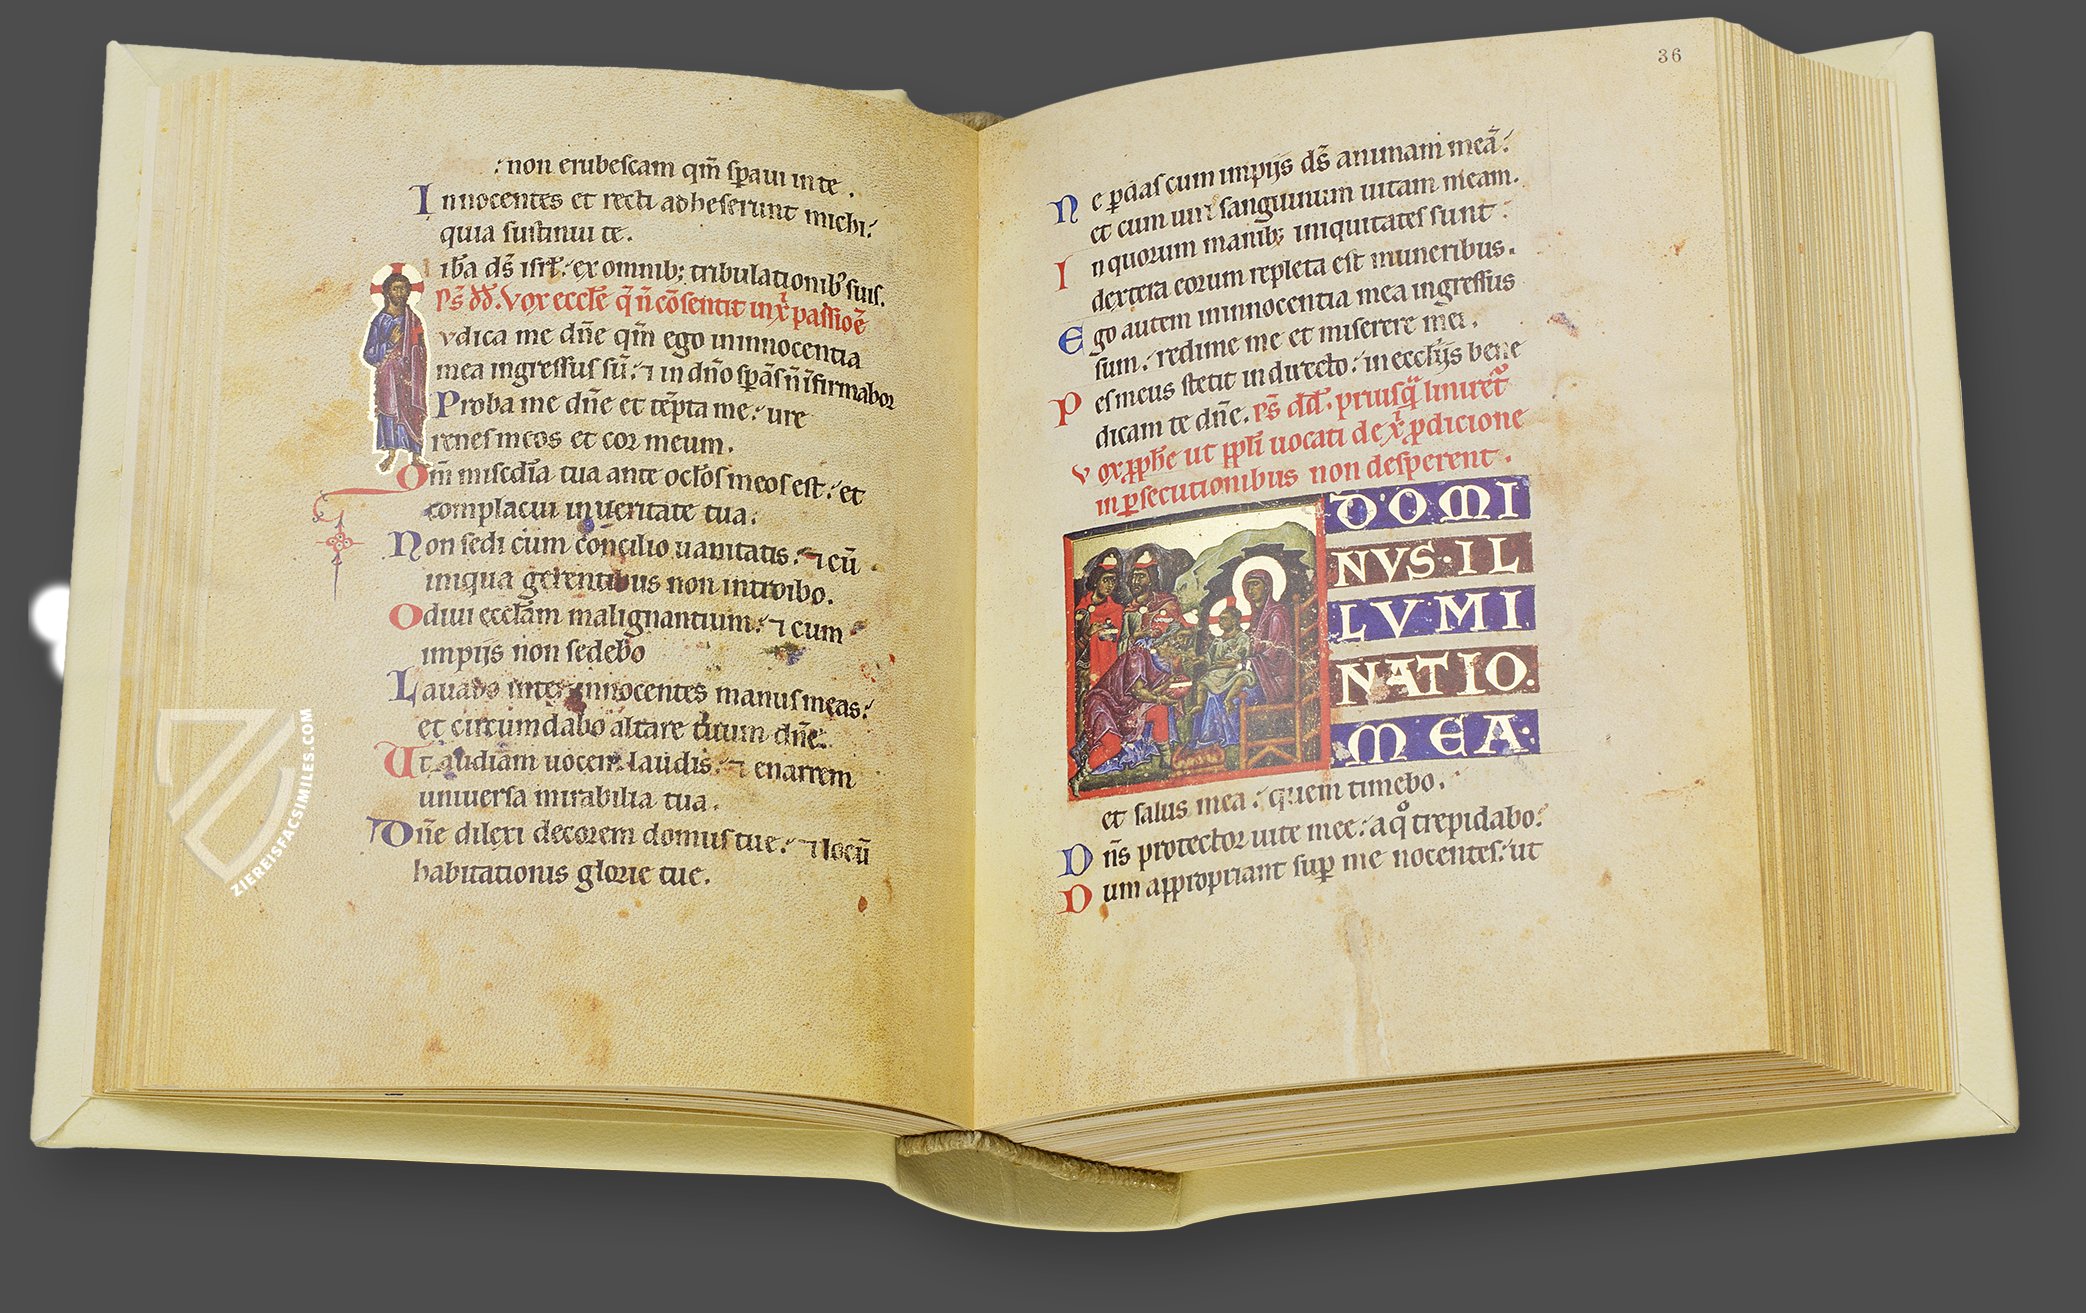 :non erubescam qm̄ sp̄aui in te.
Innocentes et recti adheserunt michi:
quia sustinui te.
lib̄a ds̄ isrl̄: ex omnib; tribulationib' suis.
Ps̄ dd̄. Vox eccl̄e q̄ n̄ cōsentit in xp̄i passiōe
vdica me dn̄e qm̄ ego in innocentia
mea ingressus sū: ⁊ in dn̄o sp̄ās n̄ īfirmabor
Proba me dn̄e et tēpta me: ure
renes meos et cor meum.
Qm̄ miscd̄ia tua ante oclōs meos est: et
complacui in ueritate tua:
Non sedi cum concilio uanitatis: ⁊ cū
iniqua gerentibus non introibo.
Odiui eccl̄am malignantium: ⁊ cum
impijs non sedebo
Lauabo inter innocentes manus meas:
et circumdabo altare tuum dn̄e:
Ut audiam uocem laudis: ⁊ enarrem
uniuersa mirabilia tua.
Dn̄e dilexi decorem domus tue: ⁊ locū
habitationis glorie tue.
36
Ne ꝑdas cum impijs ds̄ animam meā:
et cum uiris sanguinum uitam meam.
In quorum manib; iniquitates sunt:
dextera eorum repleta est muneribus.
Ego autem in innocentia mea ingressus
sum: redime me et miserere mei.
Pes meus stetit in directo: in eccl̄ijs bene
dicam te dn̄e. Ps̄ dd̄. priusq̄ liniret̄
vox ꝓph̄e ut ppl̄i uocati de xp̄i ꝑdicione
in ꝑsecutionibus non desperent.
DOMI
NVS·IL
LVMI
NATIO.
MEA·
et salus mea: quem timebo.
Dn̄s protector uite mee: a qͦ trepidabo:
Dum appropriant suꝑ me nocentes: ut
ZIEREISFACSIMILES.COM